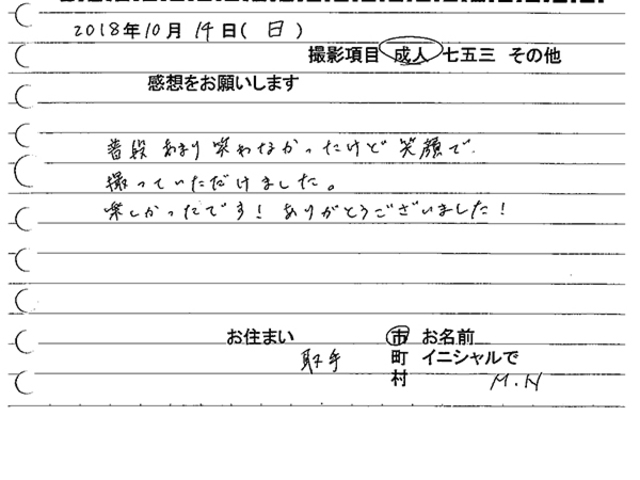 2018年10月14日(日)
撮影項目 成人 七五三 その他
感想をお願いします
普段あまり笑わなかったけど笑顔で
撮っていただけました。
楽しかったです！ ありがとうございました！
お住まい 市 お名前
取手 町 イニシャルで
村 M.N